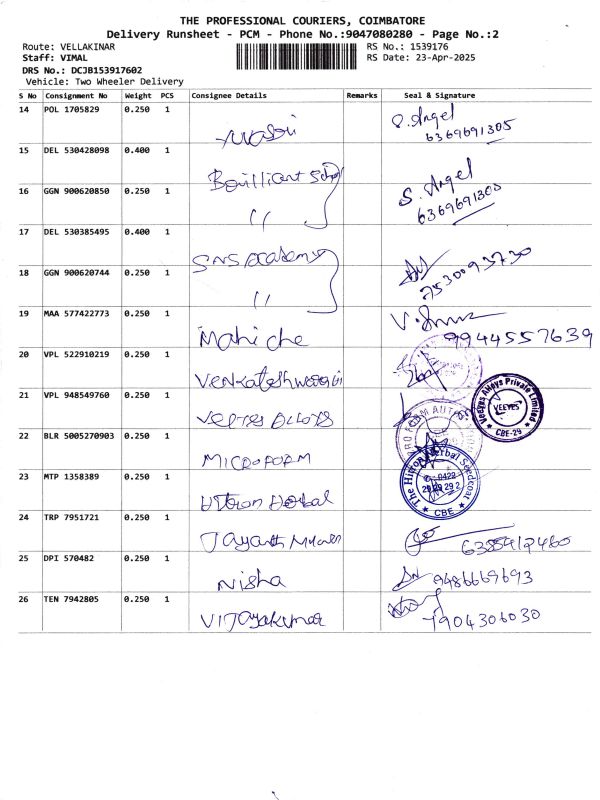 THE PROFESSIONAL COURIERS, COIMBATORE
Delivery Runsheet - PCM - Phone No.:9047080280 - Page No.:2
Route: VELLAKINAR RS No.: 1539176
Staff: VIMAL RS Date: 23-Apr-2025
DRS No.: DCJB153917602
Vehicle: Two Wheeler Delivery
S No Consignment No Weight PCS Consignee Details Remarks Seal & Signature
14 POL 1705829 0.250 1 S. Angel
6369691305
15 DEL 530428098 0.400 1
16 GGN 900620850 0.250 1 " S. Angel
6369691305
17 DEL 530385495 0.400 1 SNS Academy
18 GGN 900620744 0.250 1 " 7530093730
19 MAA 577422773 0.250 1 Mahi che 9944557639
20 VPL 522910219 0.250 1
21 VPL 948549760 0.250 1 Veeyes Private Limited
VEEYES
CBE-29
22 BLR 5005270903 0.250 1 MICROFORM
23 MTP 1358389 0.250 1 Herbal
CBE
24 TRP 7951721 0.250 1 Jayanth
25 DPI 570482 0.250 1 Nisha 9486669693
26 TEN 7942805 0.250 1 Vijayakumar 7904306030